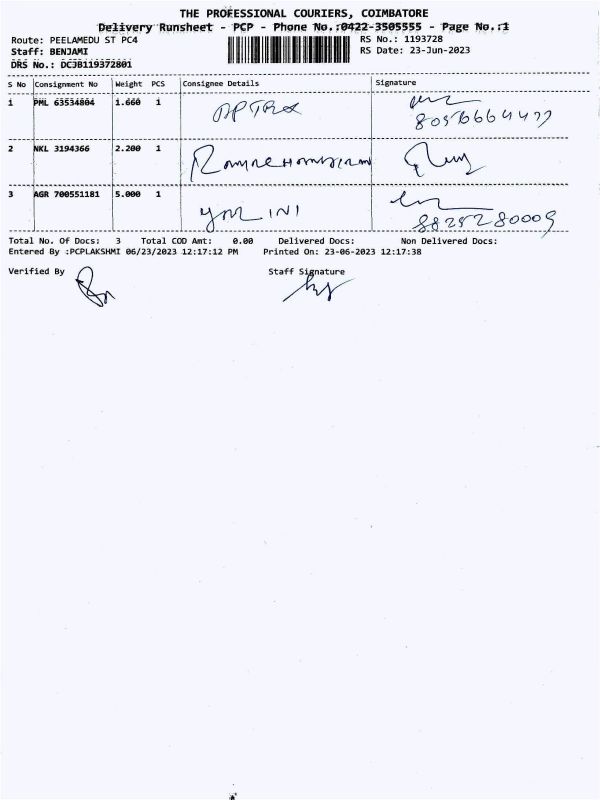 THE PROFESSIONAL COURIERS, COIMBATORE
Delivery Runsheet - PCP - Phone No.:0422-3505555 - Page No.:1
Route: PEELAMEDU ST PC4 RS No.: 1193728
Staff: BENJAMI RS Date: 23-Jun-2023
DRS No.: DCJB119372801
S No Consignment No Weight PCS Consignee Details Signature
1 PML 63534804 1.660 1
2 NKL 3194366 2.200 1
3 AGR 700551181 5.000 1
8825280009
Total No. Of Docs: 3 Total COD Amt: 0.00 Delivered Docs: Non Delivered Docs:
Entered By :PCPLAKSHMI 06/23/2023 12:17:12 PM Printed On: 23-06-2023 12:17:38
Verified By Staff Signature